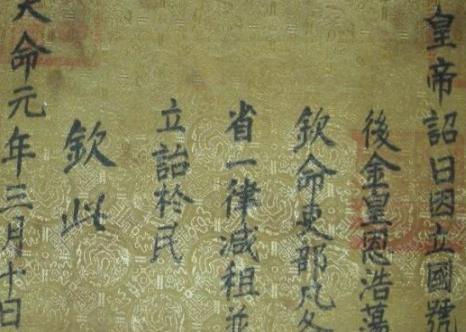 皇帝詔曰因立國號
後金皇恩浩蕩
欽命吏部凡各
省一律減租並
立詔於民
欽此
天命元年三月十日